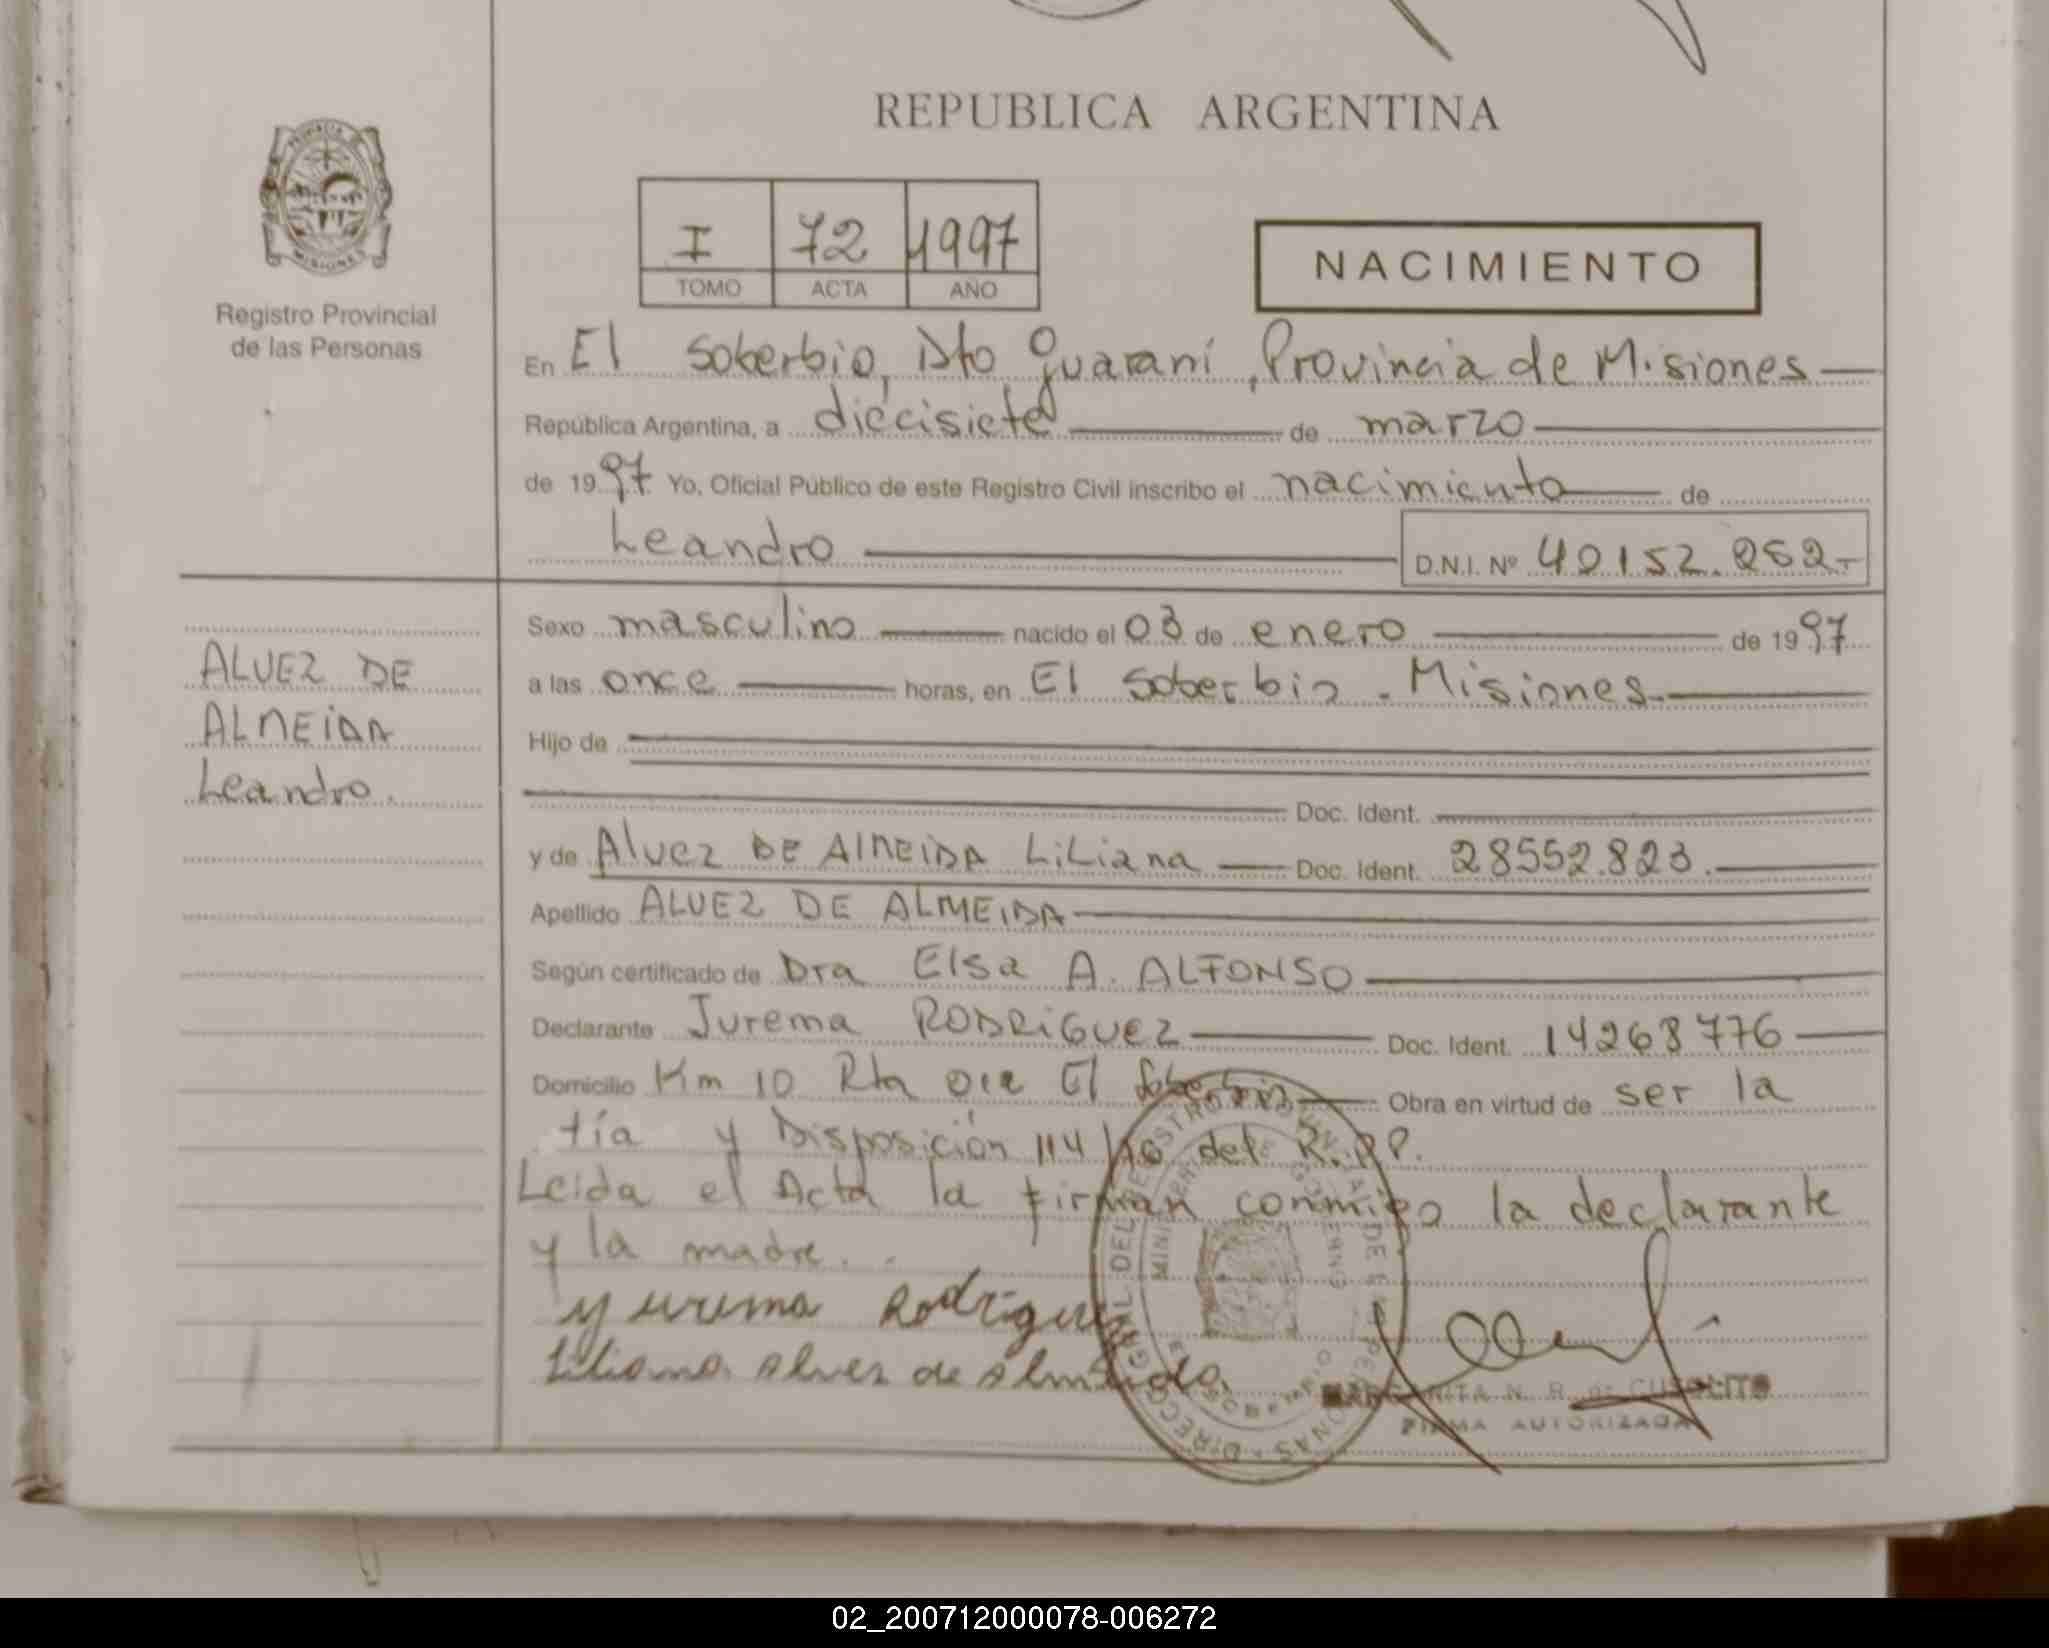 REPUBLICA ARGENTINA
PROVINCIA DE MISIONES
Registro Provincial
de las Personas
I 72 1997
TOMO ACTA AÑO
NACIMIENTO
En El Soberbio, Dto Guaraní, Provincia de Misiones
República Argentina, a diecisiete de marzo
de 1997 Yo, Oficial Público de este Registro Civil inscribo el nacimiento de
Leandro D.N.I. Nº 40152.262.-
Sexo masculino nacido el 03 de enero de 1997
a las once horas, en El Soberbio - Misiones
Hijo de
Doc. Ident.
y de Alvez DE AlMEIDA LiLiana Doc. Ident. 28552.823.
Apellido ALVEZ DE ALMEIDA
Según certificado de Dra Elsa A. ALFONSO
Declarante Jurema RODRIGUEZ Doc. Ident. 14268776
Domicilio Km 10 Rta El Soberbio Obra en virtud de ser la
tía y Disposición 114/ del R.P.P.
Leida el Acta la firman conmigo la declarante
y la madre.
yurema Rodrigue
Liliana Alvez de Almeida
MARGARITA N. R. de
FIRMA AUTORIZADA
ALVEZ DE
ALMEIDA
Leandro.
DIRECCION GRAL DEL REGISTRO PROVINCIAL DE LAS PERSONAS
MINISTERIO DE GOBIERNO
EL SOBERBIO
02_200712000078-006272